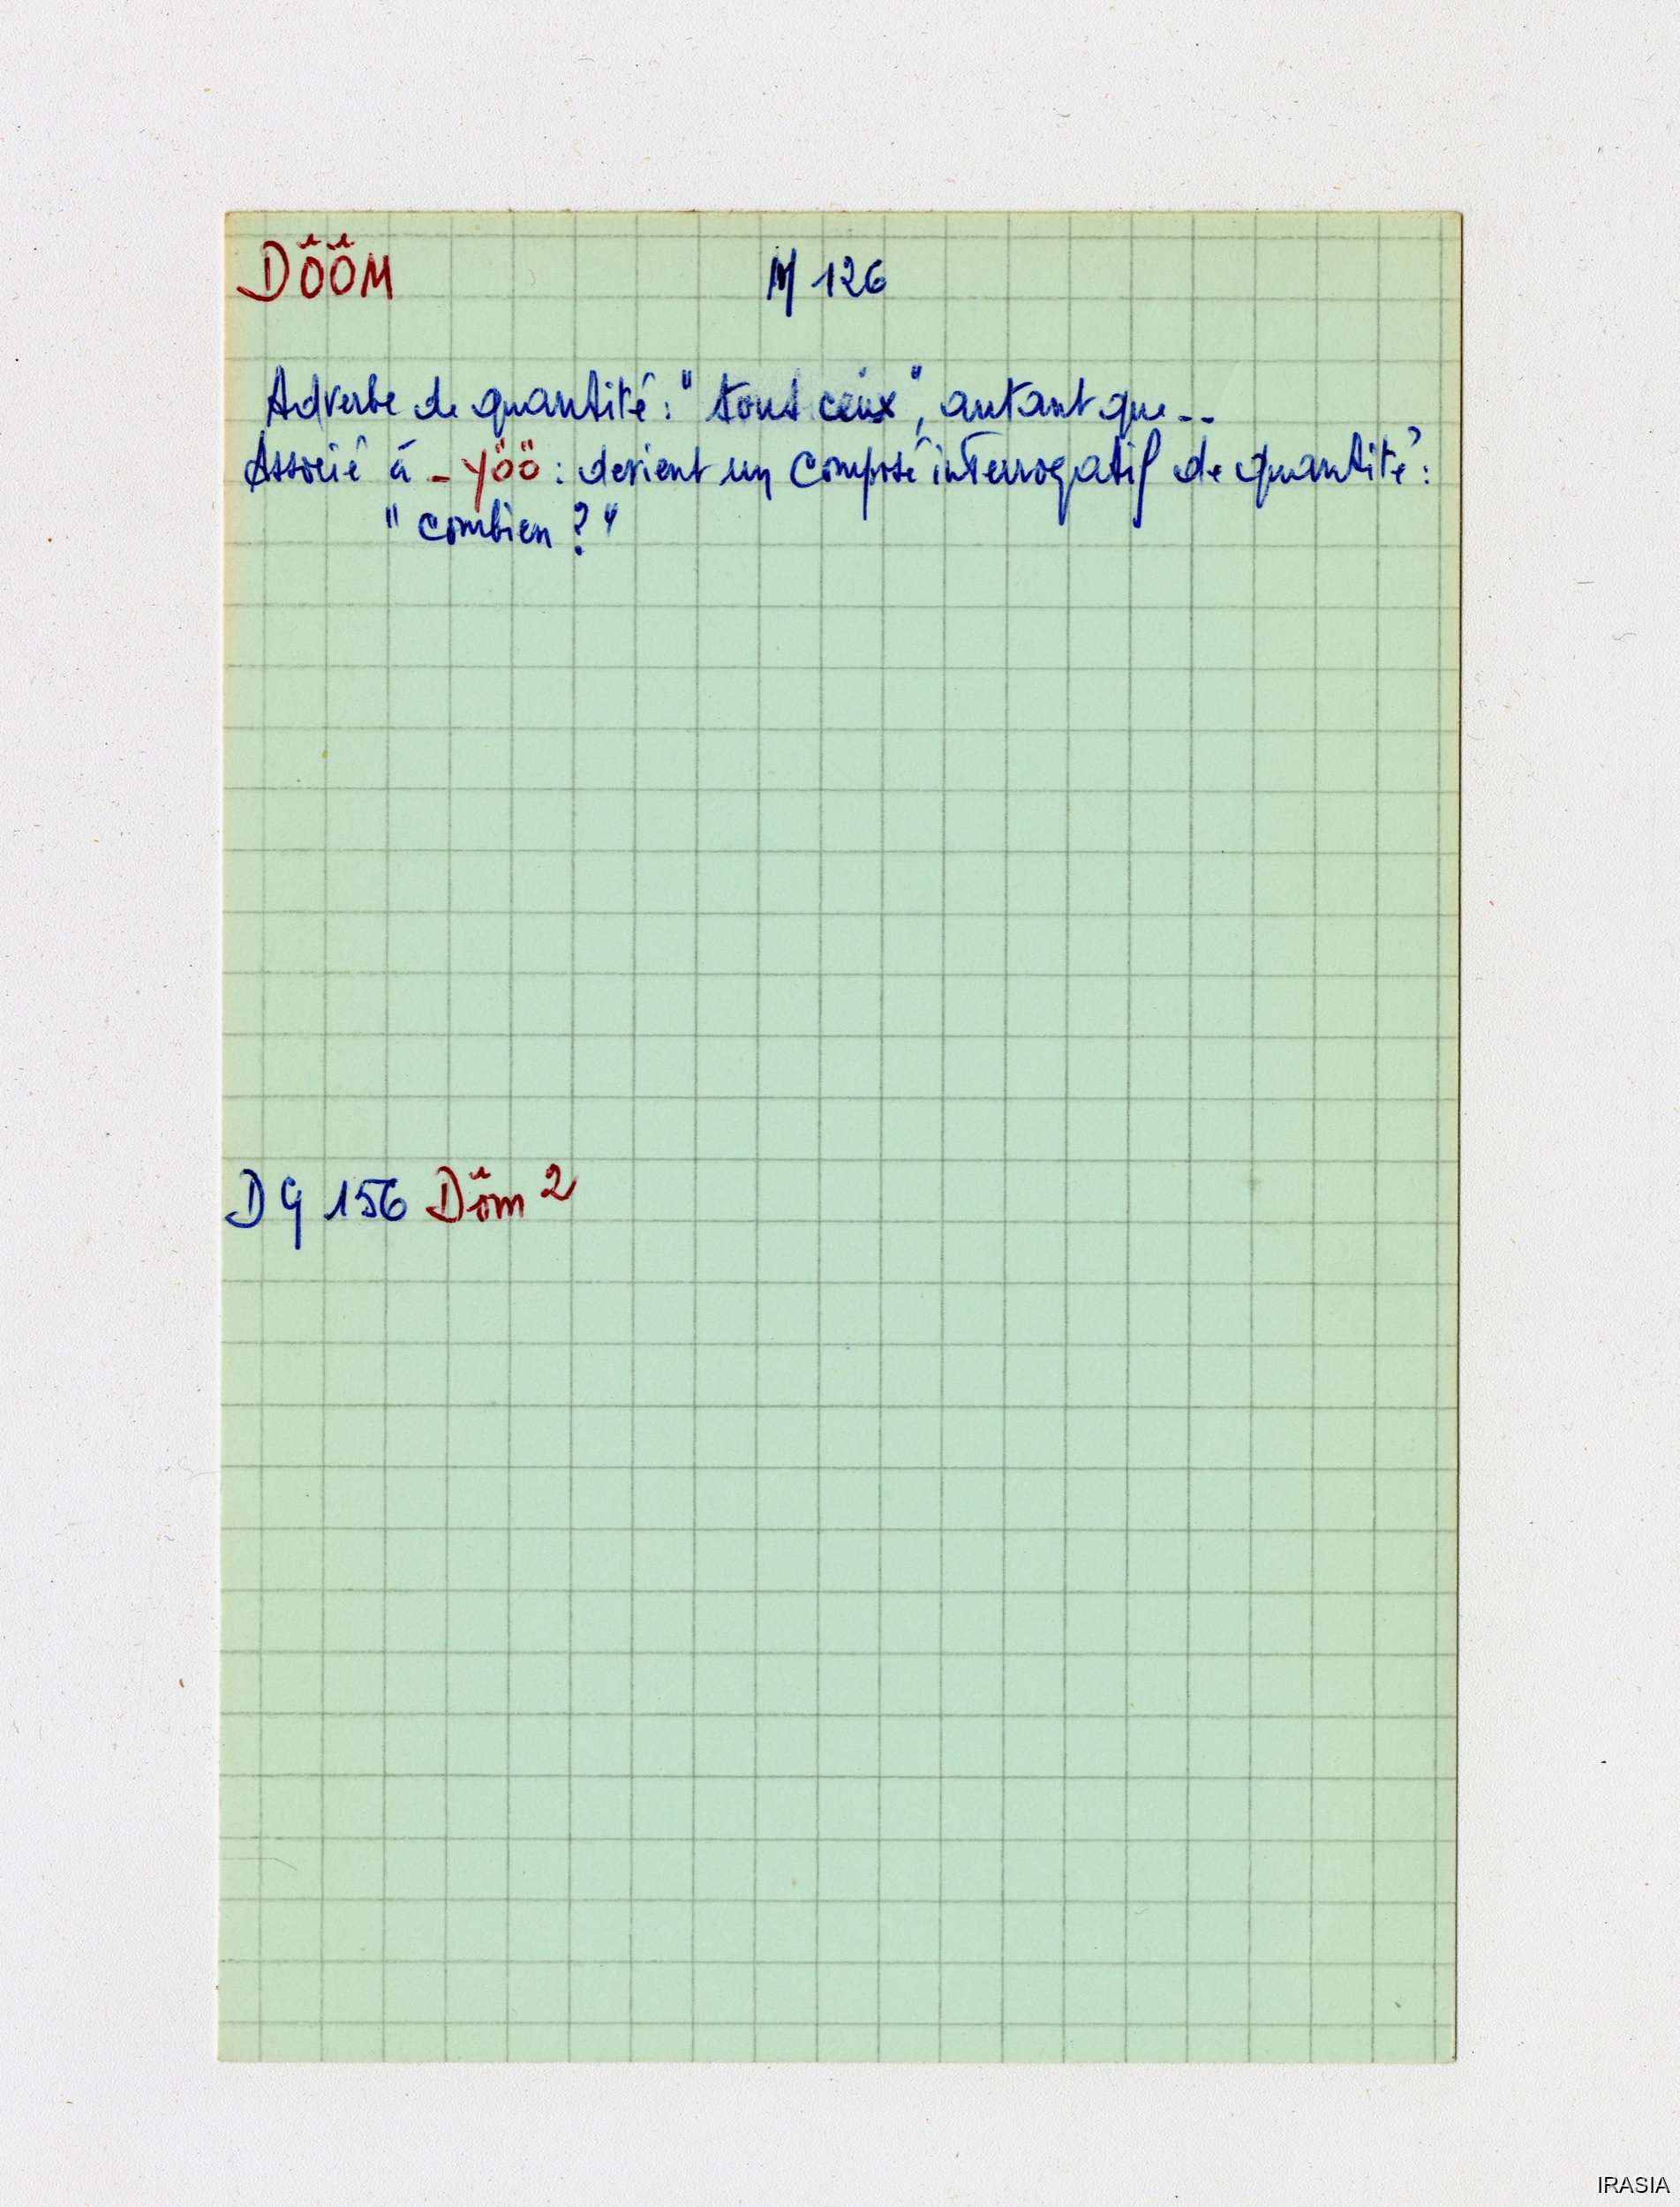 DÖÖM M 126
Adverbe de quantité : "tous ceux", autant que --
Associé à - yöö : devient un composé interrogatif de quantité :
" combien ? "
DG 156 Döm 2
IRASIA